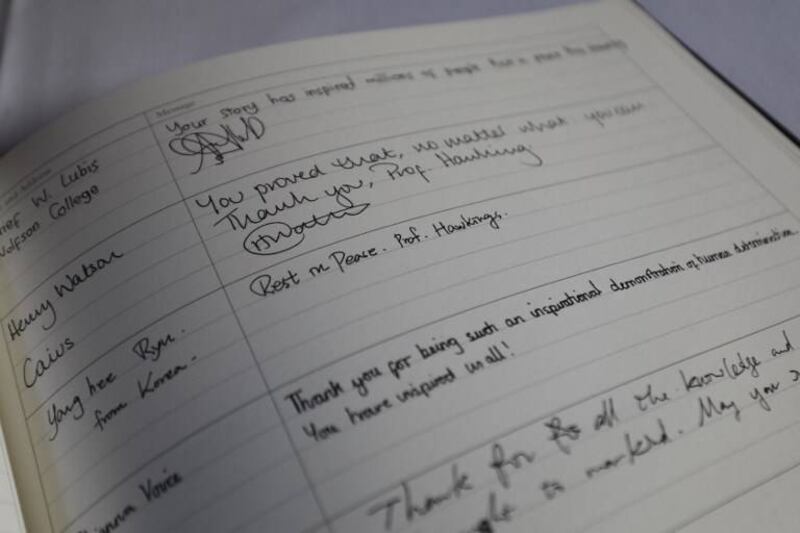 Message
Your story has inspired millions of people
W. Lubis
Wolfson College
You proved that, no matter what you can
Thank you, Prof. Hawking
Henry Watson
Caius
Rest in Peace. Prof. Hawkings.
Yong hee Ryu.
from Korea.
Thank you for being such an inspirational demonstration of human determination.
You have inspired us all!
Thank for all the knowledge and
to mankind. May you